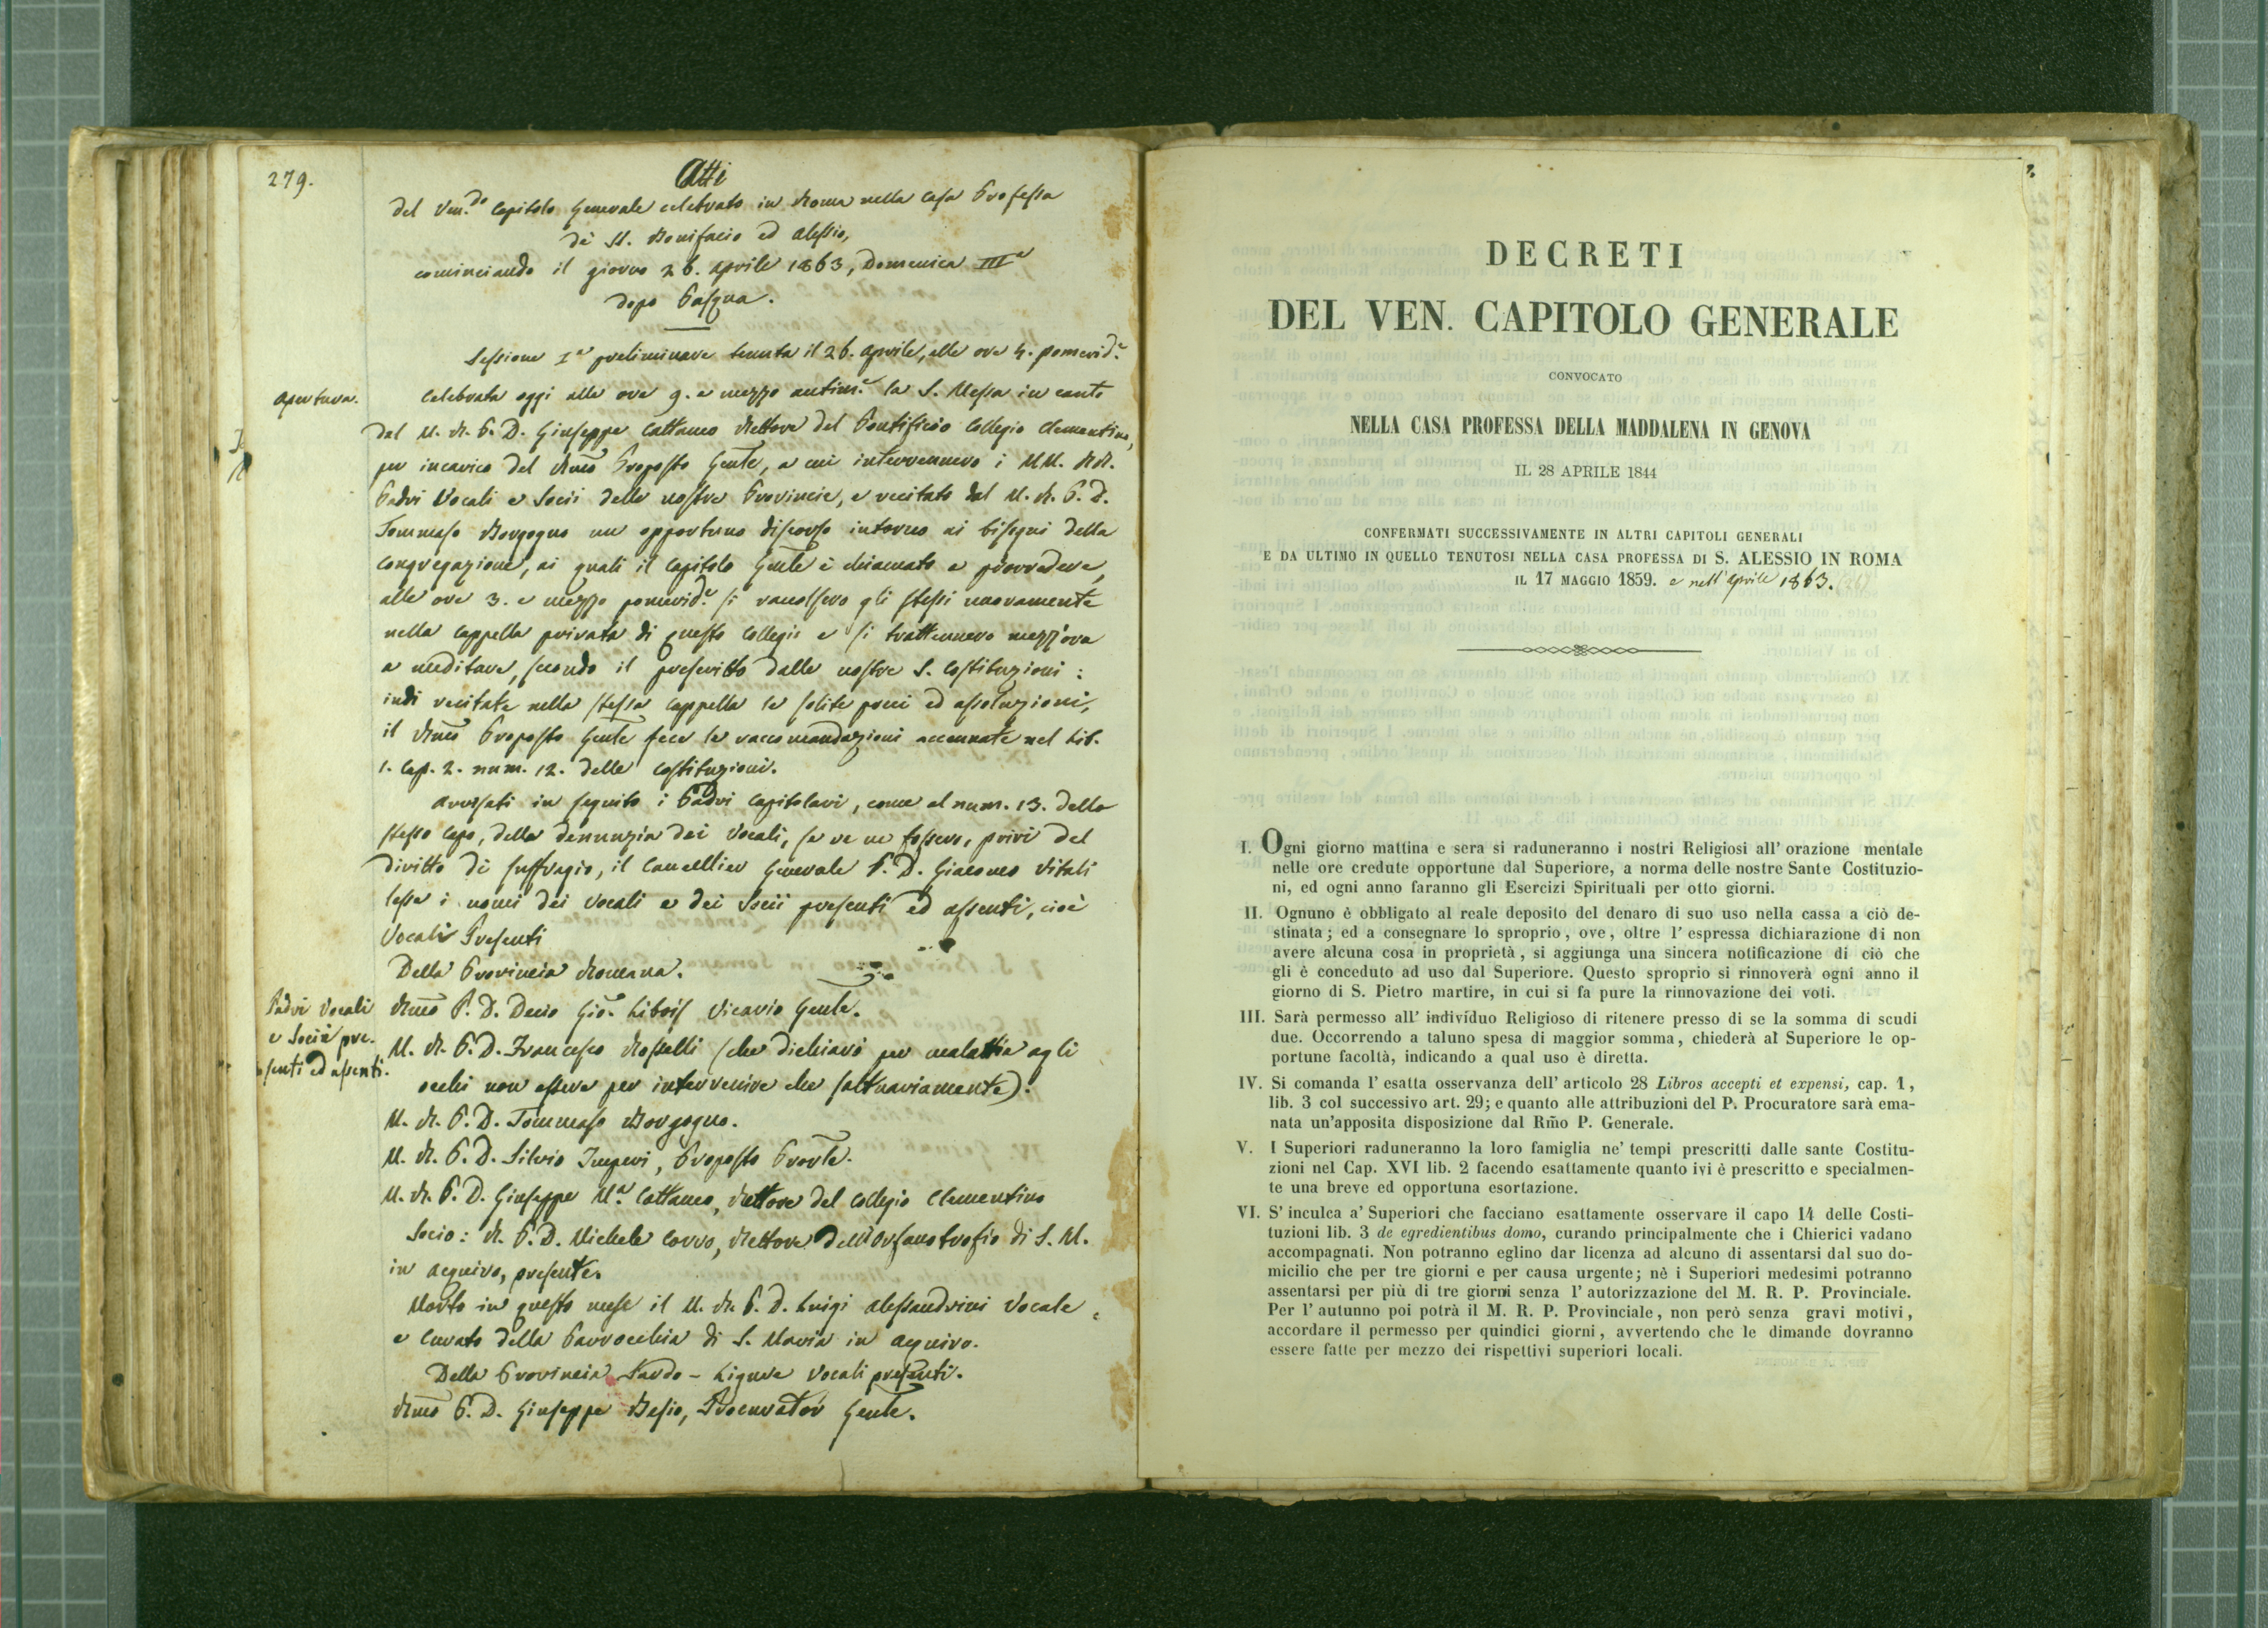 279.
Atti
del Ven.do Capitolo Generale celebrato in Roma nella Casa Professa
de' SS. Bonifacio ed Alessio,
cominciando il giorno 26. Aprile 1863, Domenica IIIa
dopo Pasqua.
Sessione Ia preliminare tenuta il 26. Aprile, alle ore 4. pomerid.e
Apertura.
Celebrata oggi alle ore 9. e mezzo antim.e la S. Messa in canto
dal M. R. P. D. Giuseppe Cattaneo Rettore del Pontificio Collegio Clementino,
per incarico del Rmo Proposto Gente, a cui intervennero i MM. RR.
Padri Vocali e Socii delle nostre Provincie, e recitato dal M. R. P. D.
Tommaso Borgogno un opportuno discorso intorno ai bisogni della
Congregazione, ai quali il Capitolo Gente è chiamato a provvedere,
alle ore 3. e mezzo pomerid.e si raccolsero gli stessi nuovamente
nella Cappella privata di questo Collegio e si trattennero mezz'ora
a meditare, secondo il prescritto dalle nostre S. Costituzioni:
indi recitate nella stessa Cappella le solite preci ed assoluzioni,
il Rmo Proposto Gente fece le raccomandazioni accennate nel Lib.
1. Cap. 2. num. 12. delle Costituzioni.
Avvisati in seguito i Padri Capitolari, come al num. 13. dello
stesso Capo, della denunzia dei Vocali, se ve ne fossero, privi del
diritto di suffragio, il Cancellier Generale P. D. Giacomo Vitali
lesse i nomi dei Vocali e dei Socii presenti ed assenti, cioè
Vocali Presenti
Della Provincia Romana.
Padri Vocali
e Socii pre-
senti ed assenti.
Rmo P. D. Decio Gio. Libois Vicario Gente.
M. R. P. D. Francesco Rosselli (che dichiarò per malattia agli
occhi non essere per intervenire che saltuariamente).
M. R. P. D. Tommaso Borgogno.
M. R. P. D. Silvio Imperi, Proposto Provle.
M. R. P. D. Giuseppe Ma. Cattaneo, Rettore del Collegio Clementino
Socio: R. P. D. Michele Corvo, Rettore dell'Orfanotrofio di S. M.
in Aquiro, presente.
Morto in questo mese il M. R. P. D. Luigi Alessandrini Vocale
e Curato della Parrocchia di S. Maria in Aquiro.
Della Provincia Sardo-Ligure Vocali presenti.
Rmo P. D. Giuseppe Besio, Procurator Gente.
DECRETI
DEL VEN. CAPITOLO GENERALE
CONVOCATO
NELLA CASA PROFESSA DELLA MADDALENA IN GENOVA
IL 28 APRILE 1844
CONFERMATI SUCCESSIVAMENTE IN ALTRI CAPITOLI GENERALI
E DA ULTIMO IN QUELLO TENUTOSI NELLA CASA PROFESSA DI S. ALESSIO IN ROMA
IL 17 MAGGIO 1859. e nell'Aprile 1863. (26)
I. Ogni giorno mattina e sera si raduneranno i nostri Religiosi all' orazione mentale
nelle ore credute opportune dal Superiore, a norma delle nostre Sante Costituzio-
ni, ed ogni anno faranno gli Esercizi Spirituali per otto giorni.
II. Ognuno è obbligato al reale deposito del denaro di suo uso nella cassa a ciò de-
stinata; ed a consegnare lo sproprio, ove, oltre l' espressa dichiarazione di non
avere alcuna cosa in proprietà, si aggiunga una sincera notificazione di ciò che
gli è conceduto ad uso dal Superiore. Questo sproprio si rinnoverà ogni anno il
giorno di S. Pietro martire, in cui si fa pure la rinnovazione dei voti.
III. Sarà permesso all' individuo Religioso di ritenere presso di se la somma di scudi
due. Occorrendo a taluno spesa di maggior somma, chiederà al Superiore le op-
portune facoltà, indicando a qual uso è diretta.
IV. Si comanda l' esatta osservanza dell' articolo 28 Libros accepti et expensi, cap. 1,
lib. 3 col successivo art. 29; e quanto alle attribuzioni del P. Procuratore sarà ema-
nata un'apposita disposizione dal Rm̃o P. Generale.
V. I Superiori raduneranno la loro famiglia ne' tempi prescritti dalle sante Costitu-
zioni nel Cap. XVI lib. 2 facendo esattamente quanto ivi è prescritto e specialmen-
te una breve ed opportuna esortazione.
VI. S' inculca a' Superiori che facciano esattamente osservare il capo 14 delle Costi-
tuzioni lib. 3 de egredientibus domo, curando principalmente che i Chierici vadano
accompagnati. Non potranno eglino dar licenza ad alcuno di assentarsi dal suo do-
micilio che per tre giorni e per causa urgente; nè i Superiori medesimi potranno
assentarsi per più di tre giorni senza l' autorizzazione del M. R. P. Provinciale.
Per l' autunno poi potrà il M. R. P. Provinciale, non però senza gravi motivi,
accordare il permesso per quindici giorni, avvertendo che le dimande dovranno
essere fatte per mezzo dei rispettivi superiori locali.